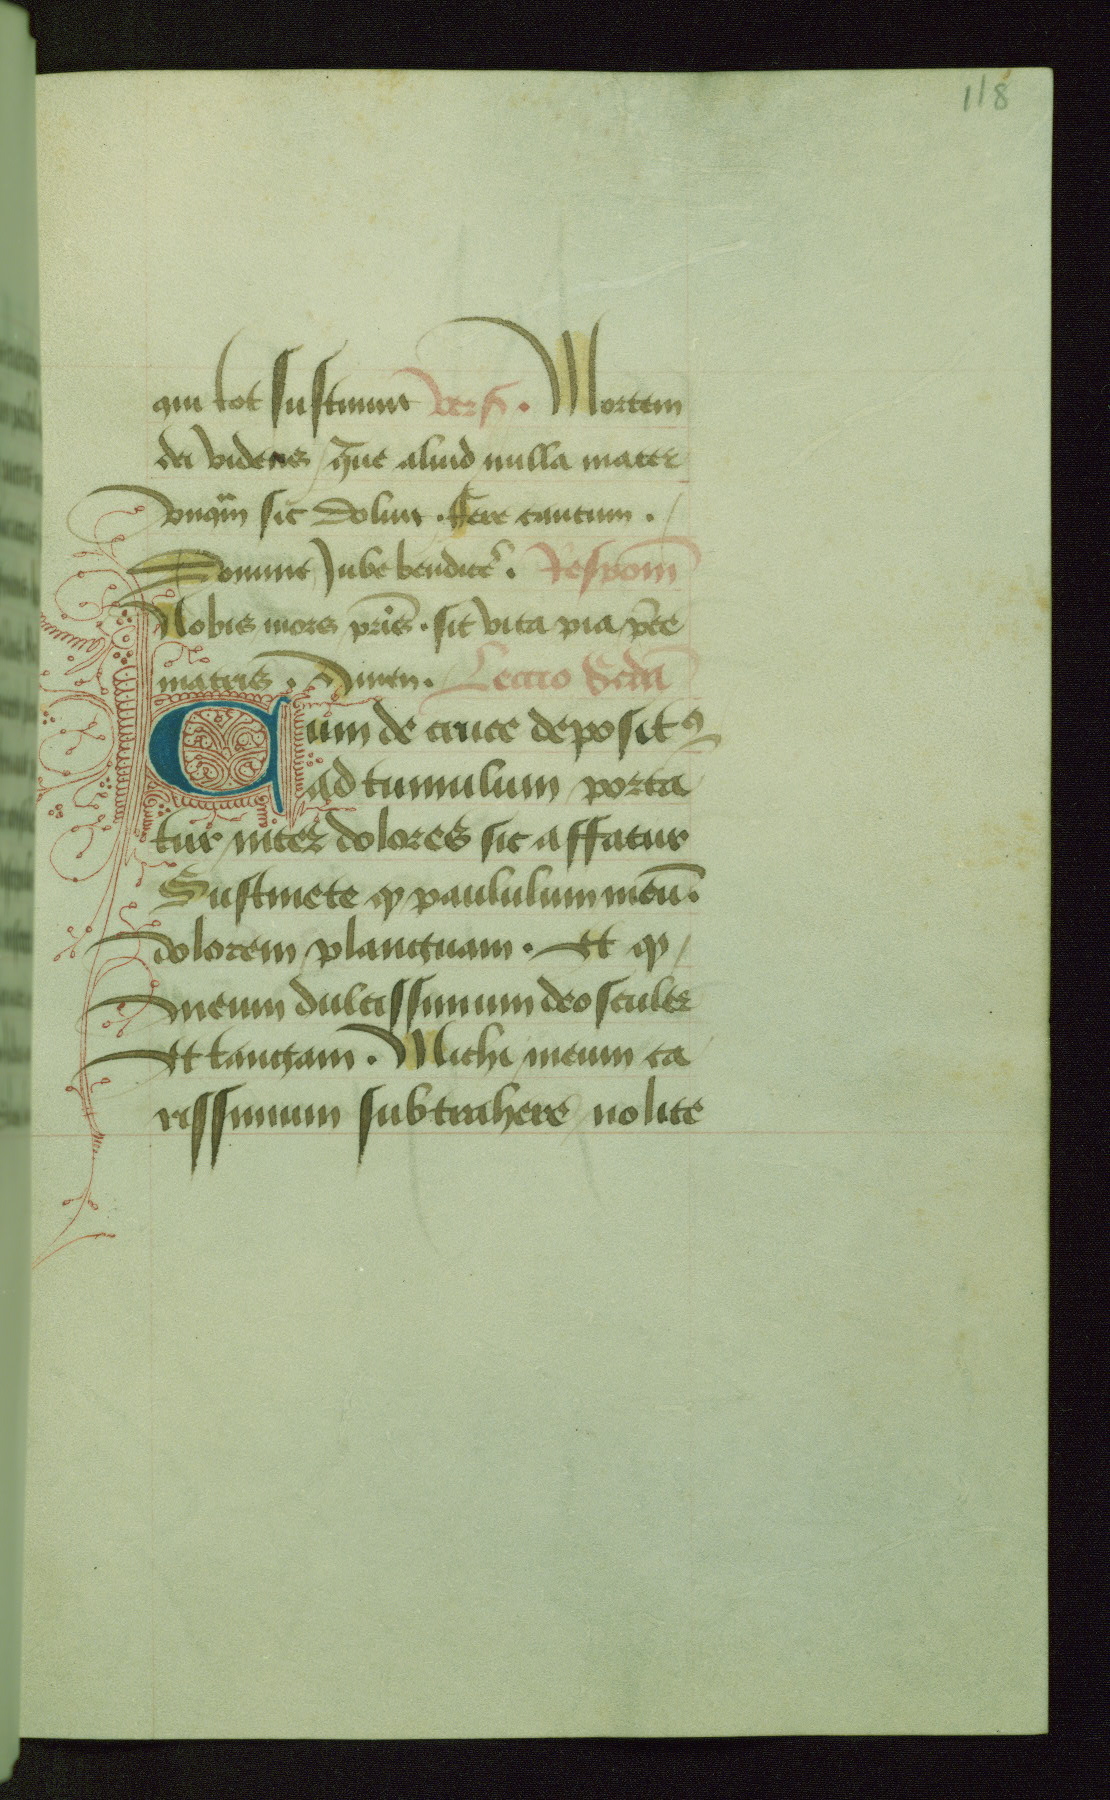 118
qui tot sustinuit vers̄. Mortem
dei videns que aliud nulla mater
vnq̄m sic doluit. Fere tantum.
Domine Iube bendic̄e. Respom̄
Nobis mors pr̄is. sit vita pia p̄ce
matris. Amen. Lectio Scdā
Cum de cruce deposit⁹
ad tumulum porta
tur inter dolores sic affatur
Sustinete qͥ paululum meū.
dolorem planguam. Et qͥ
meum dulcissimum deosculer
Et tangam. Michi meum ca
rissimum subtrahere nolite